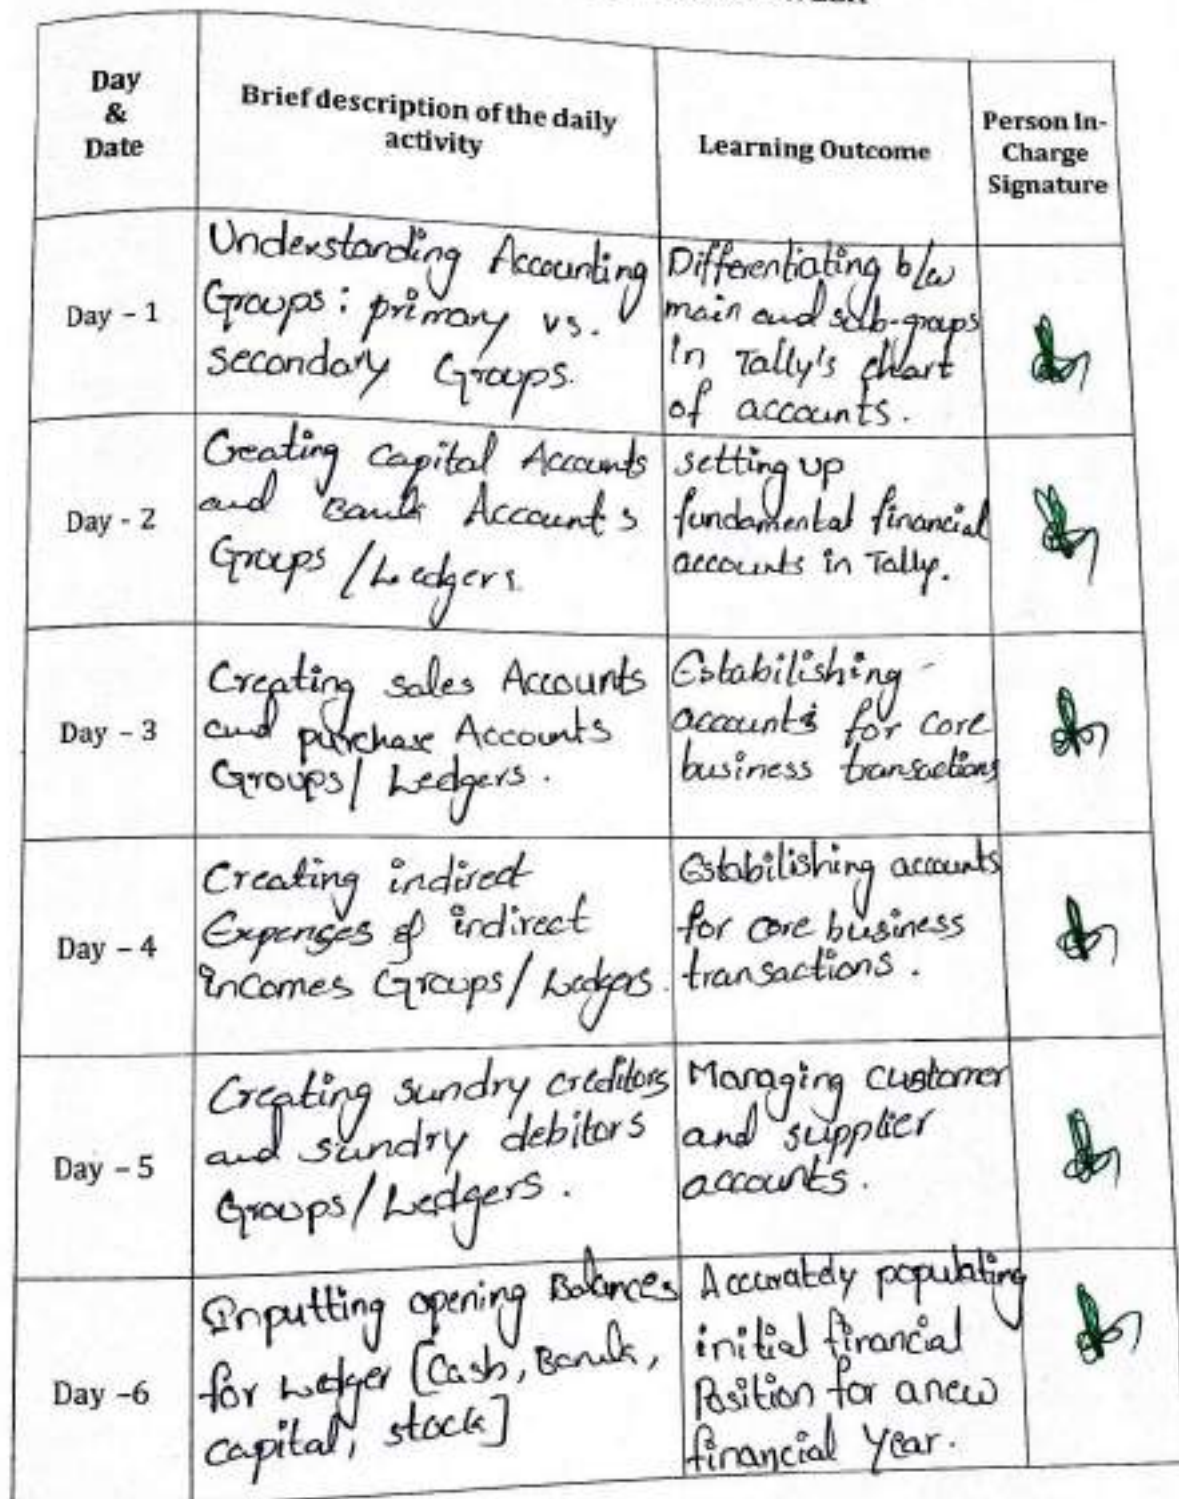 Day
&
Date
Brief description of the daily
activity
Learning Outcome
Person In-
Charge
Signature
Day - 1
Understanding Accounting
Groups : primary vs.
secondary Groups.
Differentiating b/w
main and sub-groups
in Tally's chart
of accounts.
Day - 2
Creating Capital Accounts
and Bank Accounts
Groups / Ledgers.
setting up
fundamental financial
accounts in Tally.
Day - 3
Creating sales Accounts
and purchase Accounts
Groups / Ledgers.
Estabilishing
accounts for core
business transactions
Day - 4
Creating indirect
Expenses & indirect
incomes Groups / Ledgers.
Estabilishing accounts
for core business
transactions.
Day - 5
Creating sundry creditors
and sundry debitors
Groups / Ledgers.
Managing customer
and supplier
accounts.
Day -6
Inputting opening Balances
for Ledger [Cash, Bank,
capital, stock]
Accurately populating
initial financial
Position for a new
financial Year.